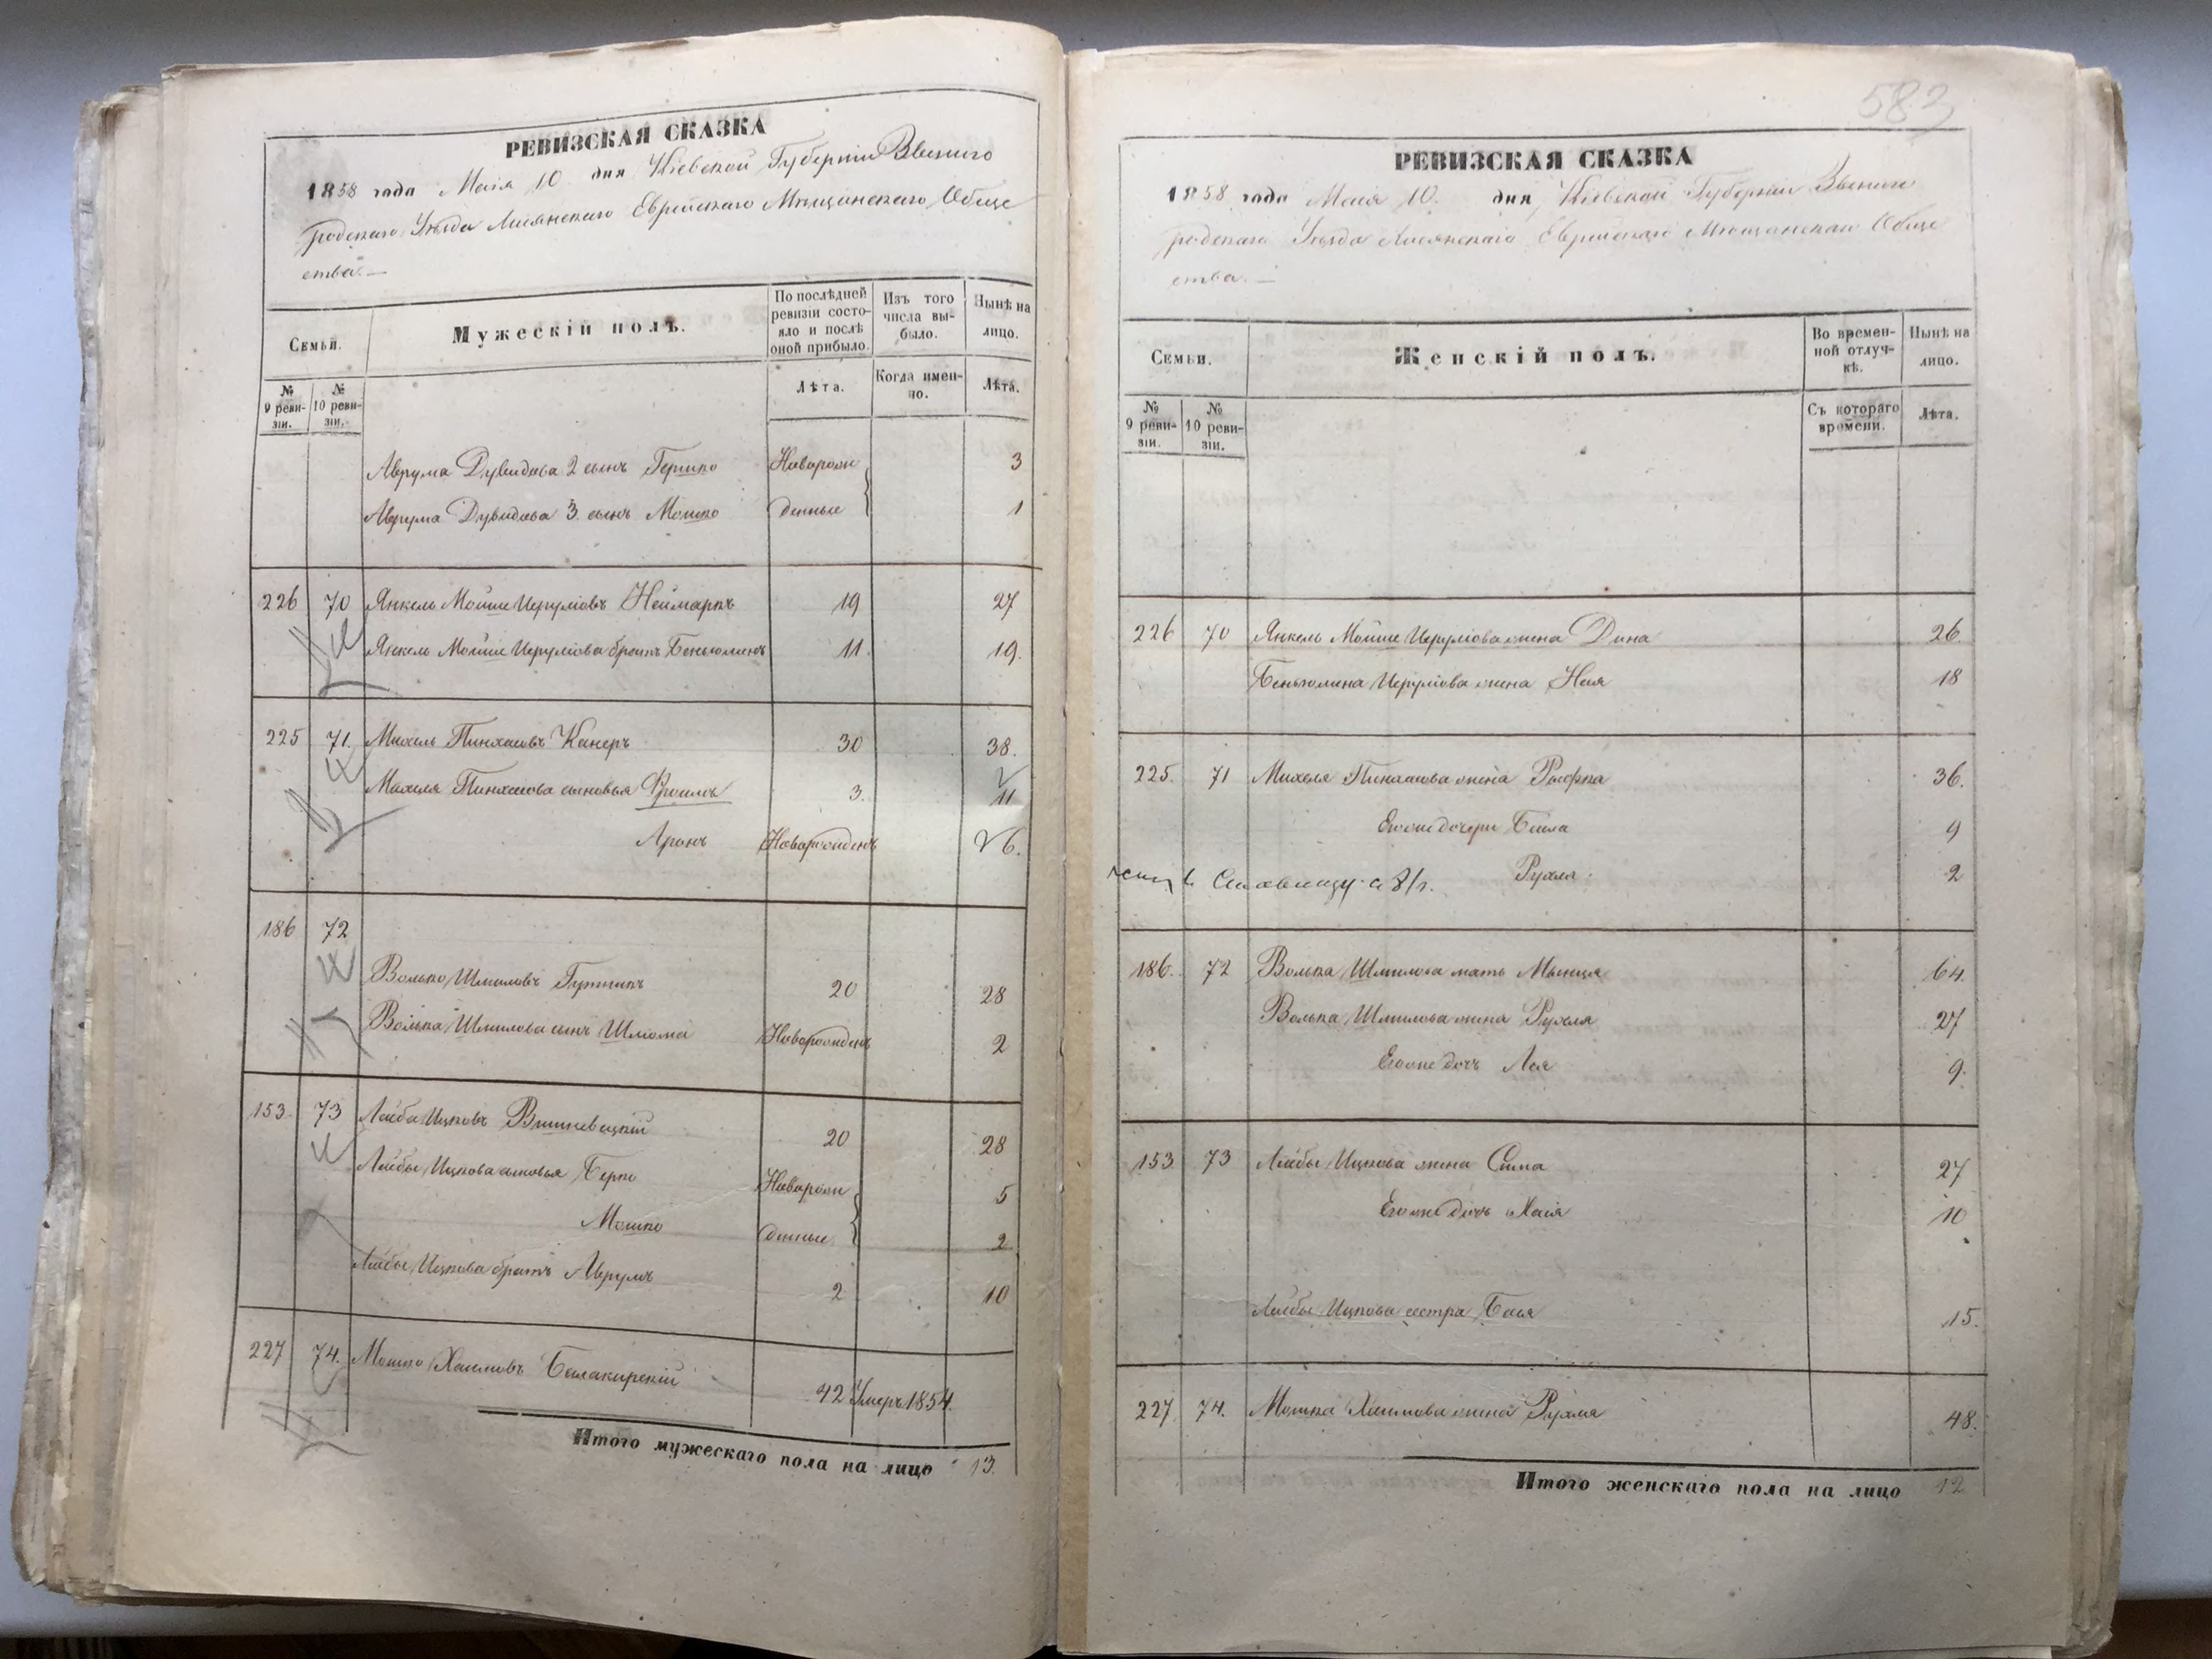 РЕВИЗСКАЯ СКАЗКА
1858 года Маія 10 дня Кіевской Губерніи Звениго
родскаго Уѣзда Лисянскаго Еврейскаго Мѣщанскаго Обще
ства.—
Семьи.
Мужескій полъ.
По послѣдней ревизіи состояло и послѣ оной прибыло.
Изъ того числа выбыло.
Нынѣ на лицо.
№ 9 ревизіи.
№ 10 ревизіи.
Лѣта.
Когда именно.
Лѣта.
Аврума Дувидова 2 сынъ Гершко Новорож 3
Аврума Дувидова 3. сынъ Мошко денные 1
226 70 Янкель Мойше Иеруліовъ Неймаркъ 19 27
Янкель Мойше Иеруліова братъ Беньюминъ 11. 19.
225 71. Михель Пинхасовъ Канеръ 30 38.
Михеля Пинхасова сыновья Фроимъ 3. 11
Аронъ Новорожденъ 6.
186 72
Волько Шмиловъ Гутникъ 20 28
Волька Шмилова сынъ Шлиома Новорожденъ 2
153. 73 Лейба Ицковъ Вишневецкій 20 28
Лейбы Ицкова сыновья Берко Новорож 5
Мошко денные 2
Лейбы Ицкова братъ Аврумъ 2 10
227 74. Мошко Хаимовъ Балакирскій 42 Умеръ 1854.
Итого мужескаго пола на лицо 13.
583
РЕВИЗСКАЯ СКАЗКА
1858 года Маія 10. дня Кіевской Губерніи Звениго
родскаго Уѣзда Лисянскаго Еврейскаго Мѣщанскаго Обще
ства.—
Семьи.
Женскій полъ.
Во временной отлучкѣ.
Нынѣ на лицо.
№ 9 ревизіи.
№ 10 ревизіи.
Съ котораго времени.
Лѣта.
226 70 Янкель Мойше Иеруліова жена Дина 26.
Беньюмина Иеруліова жена Хая 18
225. 71 Михеля Пинхасова жена Рифка 36.
Егоже дочери Бейла 9
Рухля 2
186. 72 Волька Шмилова мать Мынця 64.
Волька Шмилова жена Рухля 27
Егоже дочь Лея 9.
153 73 Лейбы Ицкова жена Сима 27
Егоже дочь Хаія 10
Лейбы Ицкова сестра Бася 15.
227 74. Мошка Хаимова жена Рухля 48.
Итого женскаго пола на лицо 12